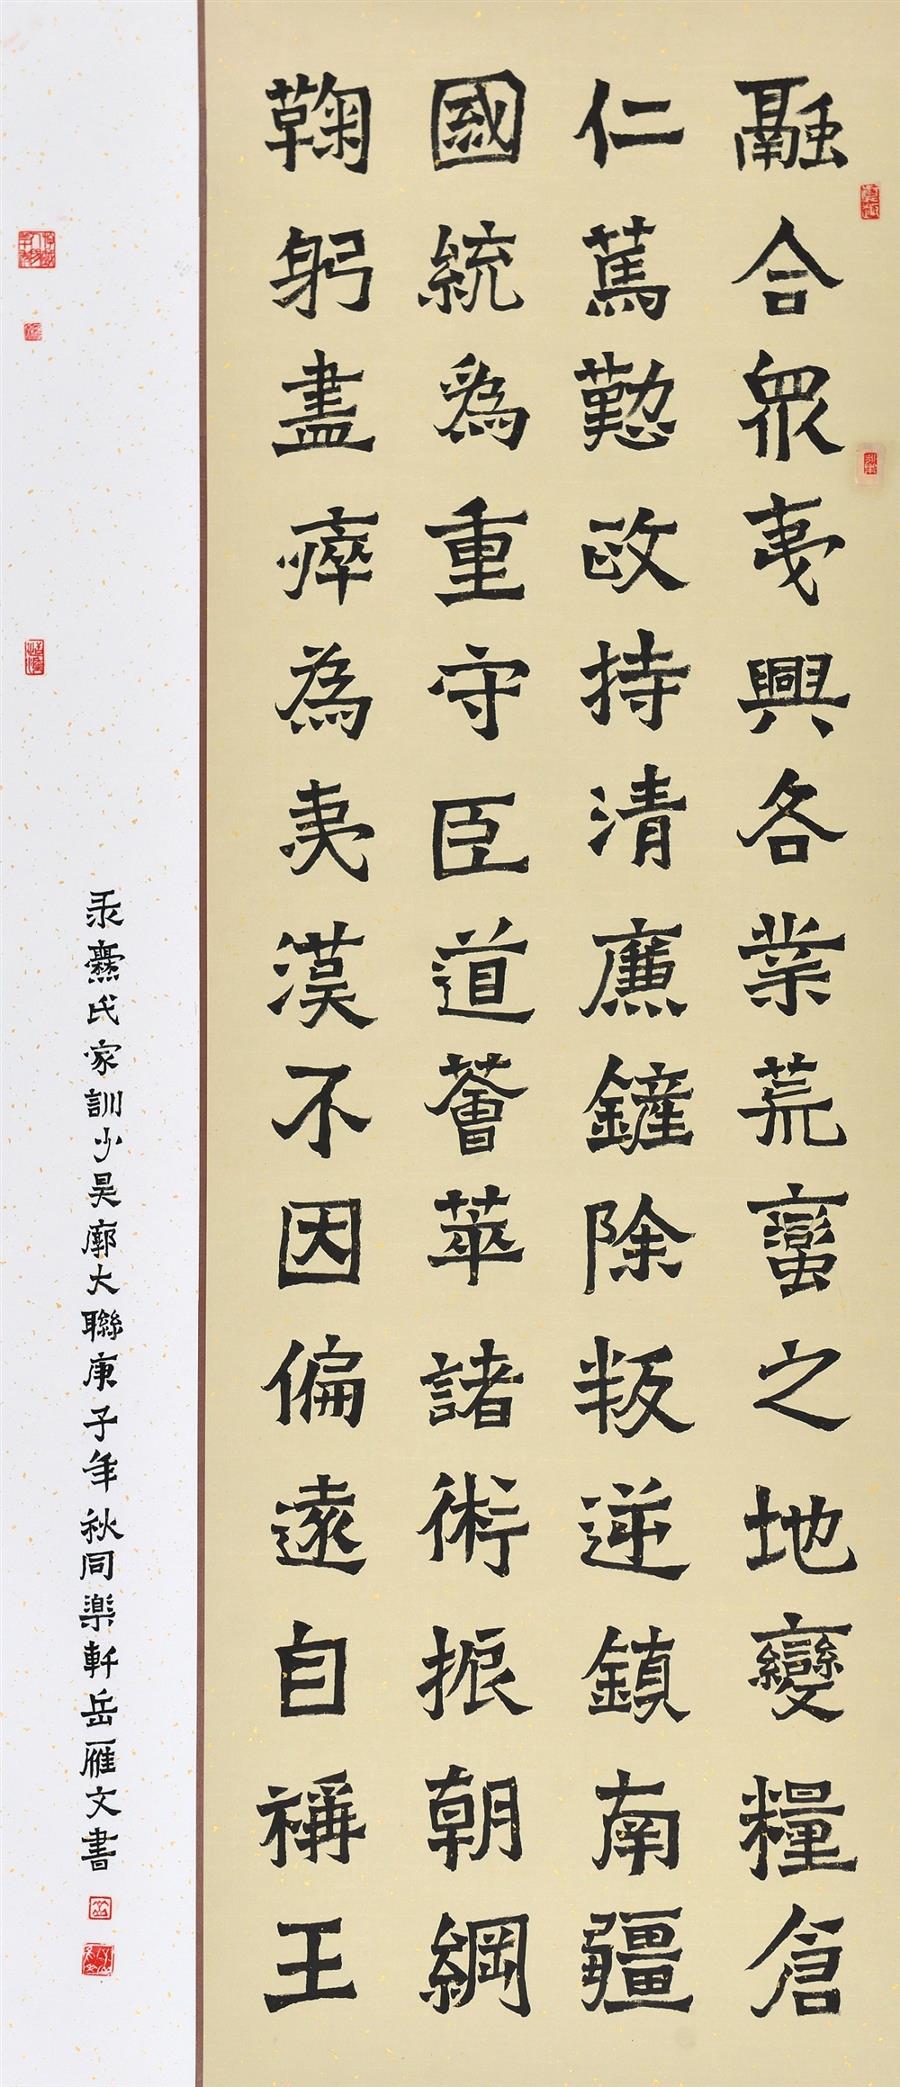 融合眾夷興各業荒蠻之地變糧倉
仁篤懃政持清廉鏟除叛逆鎮南疆
國統為重守臣道薈萃諸術振朝綱
鞠躬盡瘁為夷漢不因偏遠自稱王
录爨氏家訓少昊廓大聯庚子年秋同楽軒岳雁文書